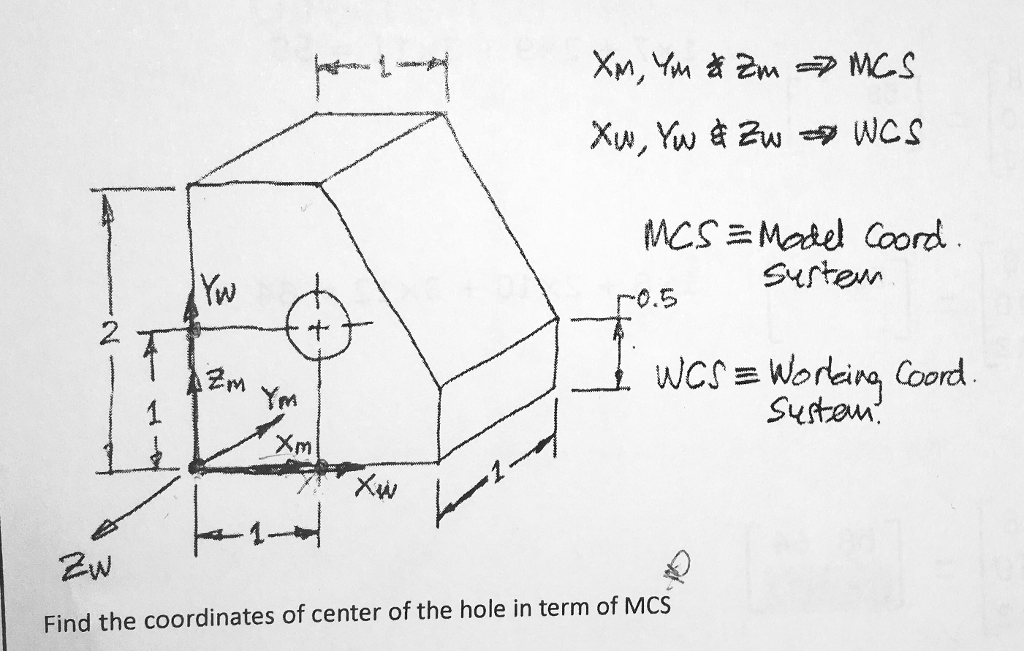 1
Xm, Ym & Zm ⇒ MCS
Xw, Yw & Zw ⇒ WCS
MCS ≡ Model Coord.
System
Yw
0.5
2
Zm
Ym
WCS ≡ Working Coord.
System.
1
Xm
Xw
1
1
Zw
Find the coordinates of center of the hole in term of MCS